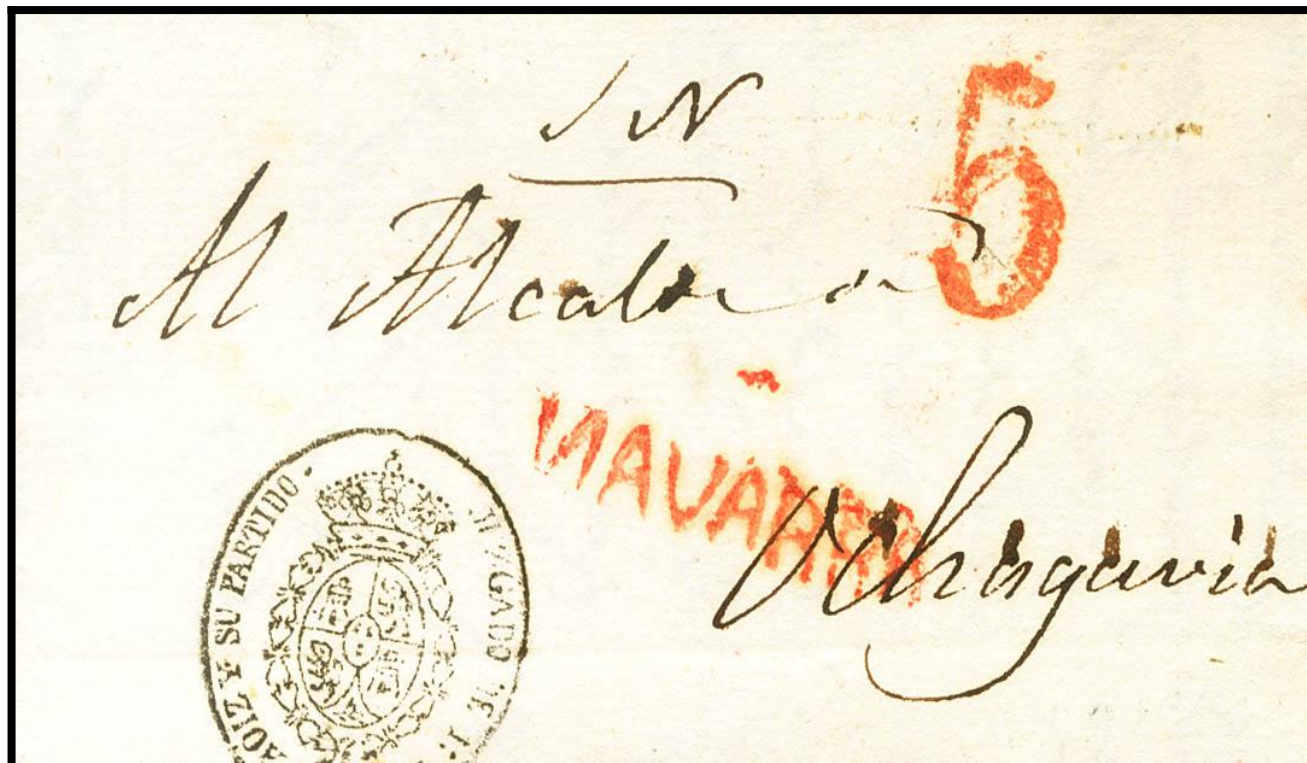 S N
5
Al Alcalde de
NAVARRA
Ochagavia
JUZGADO DE 1ª
AOIZ Y SU PARTIDO